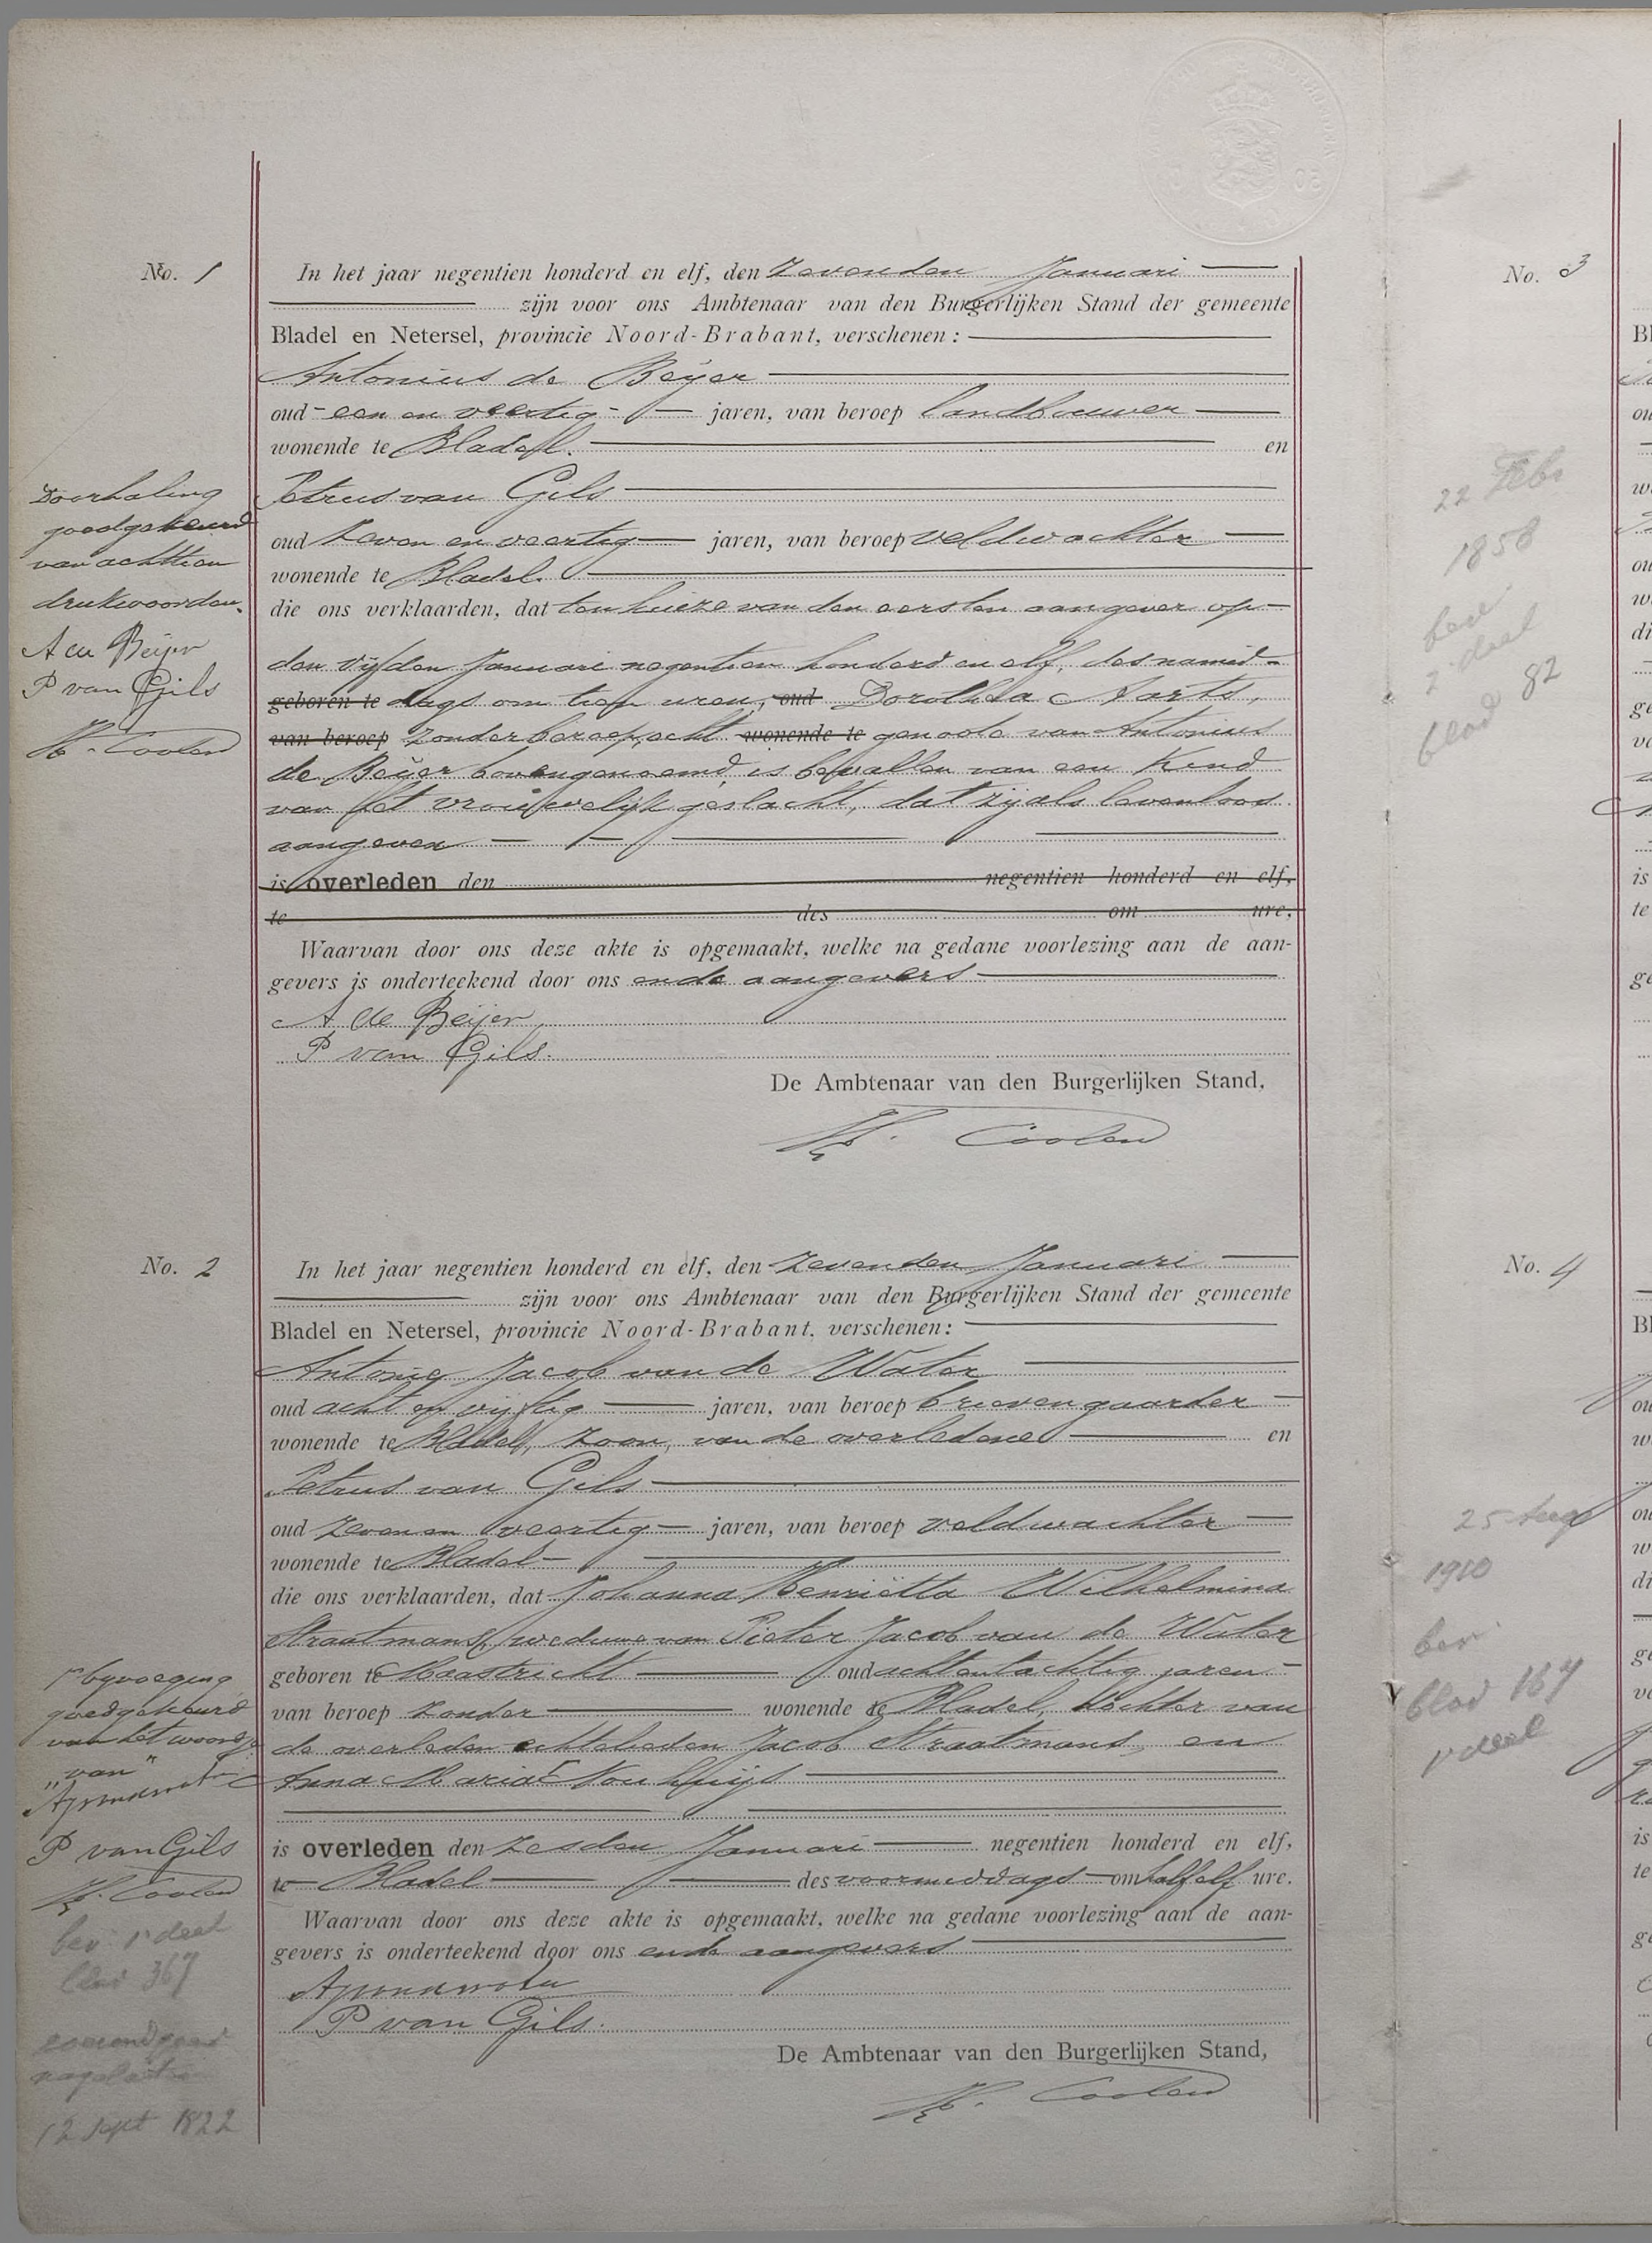 No. 1
In het jaar negentien honderd en elf, den zevenden Januari
zijn voor ons Ambtenaar van den Burgerlijken Stand der gemeente
Bladel en Netersel, provincie Noord-Brabant, verschenen:
Antonius de Beijer
oud een en veertig jaren, van beroep landbouwer
wonende te Bladel. en
Petrus van Gils
oud zeven en veertig jaren, van beroep veldwachter
wonende te Bladel.
die ons verklaarden, dat ten huize van den eersten aangever op
den vijfden Januari negentien honderd en elf, des namid-
geboren te dags om tien uren, oud Dorothea Aarts,
van beroep zonder beroep, echt wonende te genoote van Antonius
de Beijer bovengenoemd, is bevallen van een kind
van het vrouwelijk geslacht, dat zij als levenloos
aangeven
is overleden den negentien honderd en elf,
te des om ure,
Waarvan door ons deze akte is opgemaakt, welke na gedane voorlezing aan de aan-
gevers is onderteekend door ons en de aangevers
A de Beijer
P van Gils.
De Ambtenaar van den Burgerlijken Stand,
Coolen
Doorhaling
goedgekeurd
van achttien
drukwoorden.
A de Beijer
P van Gils
Coolen
No. 2
In het jaar negentien honderd en elf, den zevenden Januari
zijn voor ons Ambtenaar van den Burgerlijken Stand der gemeente
Bladel en Netersel, provincie Noord-Brabant, verschenen:
Antonie Jacob van de Water
oud acht en vijftig jaren, van beroep brievengaarder
wonende te Bladel, zoon, van de overledene en
Petrus van Gils
oud zeven en veertig jaren, van beroep veldwachter
wonende te Bladel
die ons verklaarden, dat Johanna Henriëtta Wilhelmina
Straatmans, weduwe van Pieter Jacob van de Water
geboren te Maastricht oud achtentachtig jaren
van beroep zonder wonende te Bladel, dochter van
de overleden echtelieden Jacob Straatmans, en
Anna Maria
is overleden den zesden Januari negentien honderd en elf,
te Bladel des voormiddags om half elf ure.
Waarvan door ons deze akte is opgemaakt, welke na gedane voorlezing aan de aan-
gevers is onderteekend door ons en de aangevers
P van Gils.
De Ambtenaar van den Burgerlijken Stand,
Coolen
bijvoeging
goedgekeurd
van het woordje
"van"
P van Gils
Coolen
bev. 1e deel
blad 367
12 Sept 1822
No. 3
22 Febr
1858
bev.
2e deel
blad 82
No. 4
25 Aug
1910
bev.
blad 167
1e deel